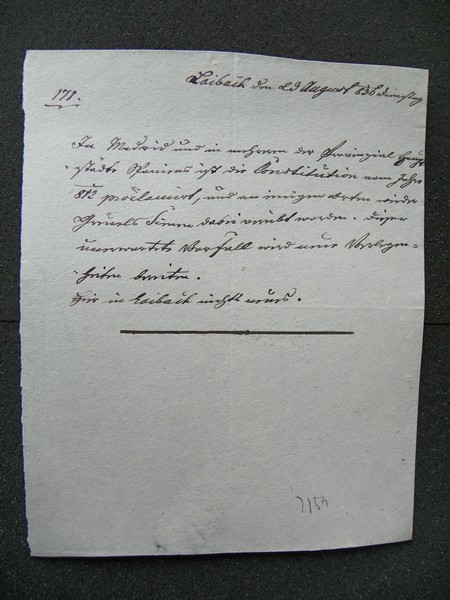 Laibach den 23 August 836 Dienstag
171.
In Madrid und in mehreren der Provinzial Haupt-
städte Spaniens ist die Constitution vom Jahre
812 proclamirt, und an einigen Orten wieder
Greuels Scenen dabei verübt worden. Dieser
unerwartete Vorfall wird neue Verlegen-
heiten bereiten.
Hier in Laibach nichts neues.